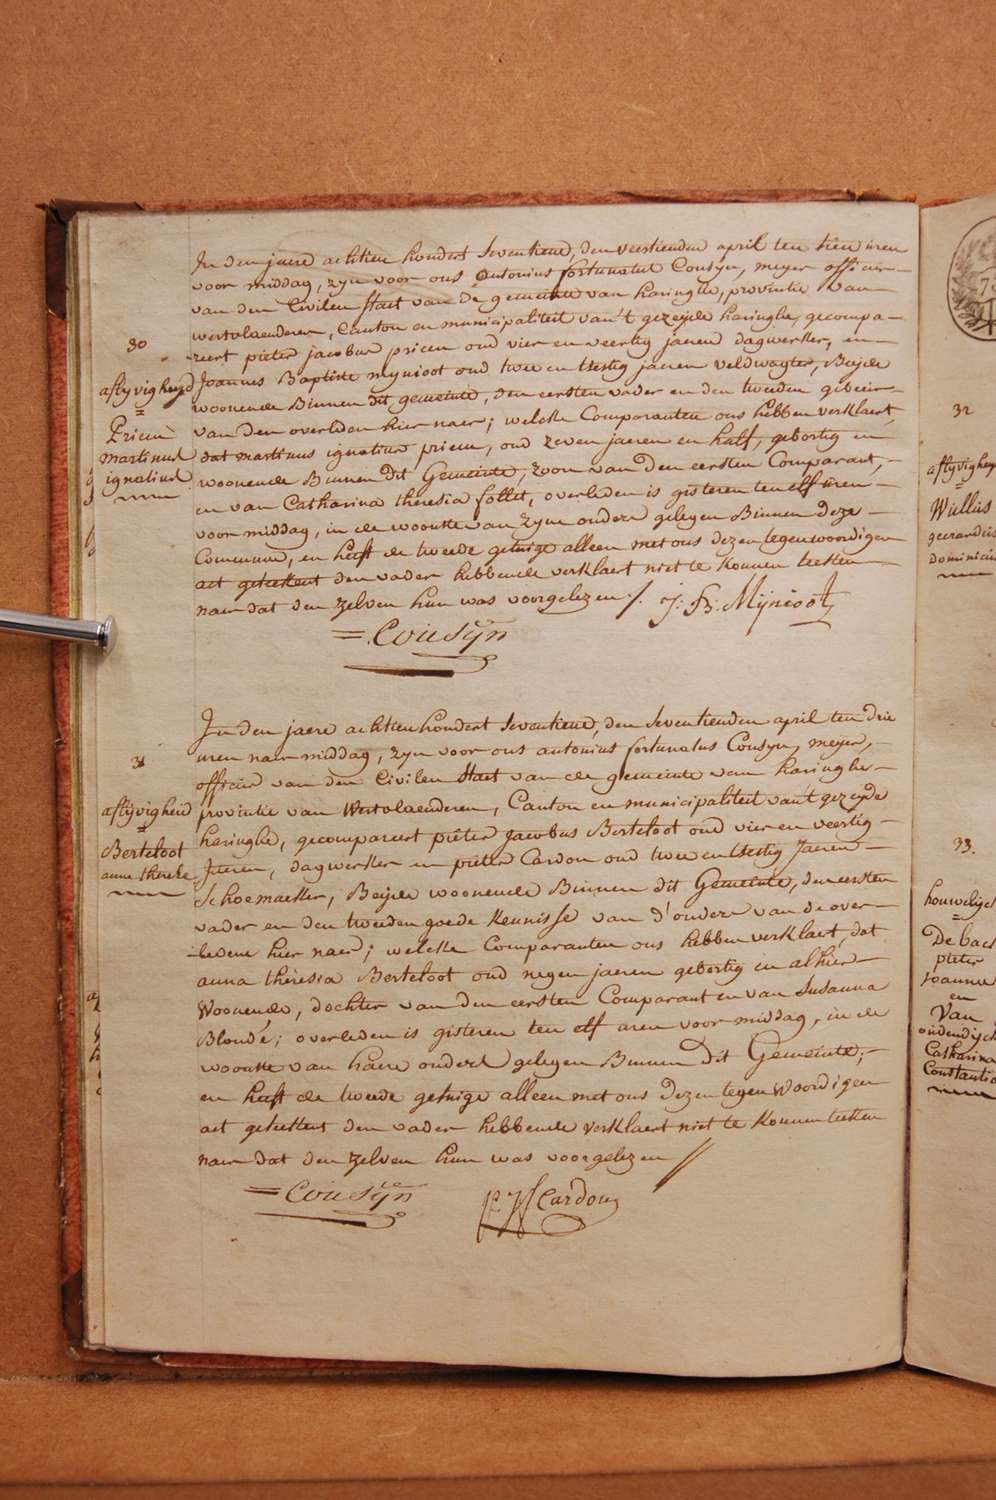 30
aflijvigheijd
=
Prieur
martinus
ignatius
In den jaere achtien hondert seventiend, den veertienden april ten tien uren
voor middag, zyn voor ons antonius fortunatus Cousyn, meyer officier
van den Civilen staet van de gemeinte van haringhe, provintie van
westvlaenderen, Canton en municipaliteit van't gezeijde haringhe, gecompa-
reert pieter jacobus prieur oud vier en veertig jaeren dagwerker, en
Joannes Baptiste mynioot oud twee en tsestig jaeren veldwagter, Beijde
woonende Binnen dit gemeinte, den eersten vader en den tweeden gebeur
van den overleden hier naer; welcke Comparanten ons hebben verklaert,
dat martinus ignatius prieur, oud zeven jaeren en half, gebortig en
woonende Binnen dit Gemeinte, zoon van den eersten Comparant,
en van Catharina theresia follet, overleden is gisteren ten elf uren
voor middag, in de woonste van zyne ouders gelegen Binnen deze
Commune, en heeft de tweede getuige alleen met ons dezen tegenwoordigen
act geteekent den vader hebbende verklaert niet te konnen teeken
naer dat den zelven hun was voorgelezen /. J: B: Mijnioot
= Cousijn
31
aflijvigheid
=
Berteloot
anna therese
In den jaere achtien hondert seventiend, den seventienden april ten drie
uren naer middag, zyn voor ons antonius fortunatus Cousyn, meyer,
officier van den Civilen staet van de gemeinte van haringhe
provintie van Westvlaenderen, Canton en municipaliteit van't gezeijde
haringhe, gecompareert pieter jacobus Berteloot oud vier en veertig
Jaeren, dagwerker en pieter Cardon oud twee en tsestig Jaeren
schoemaeker, Beijde woonende Binnen dit Gemeinte, den eersten
vader en den tweeden goede kennisse van d'ouders van de over-
ledene hier naer; welcke Comparanten ons hebben verklaert, dat
anna theresia Berteloot oud negen jaeren gebortig en alhier
Woonende, dochter van den eersten Comparant en van Susanna
Blondé; overleden is gisteren ten elf uren voor middag, in de
woonste van haere ouders gelegen Binnen dit Gemeinte;
en heeft de tweede getuige alleen met ons dezen tegen Woordigen
act geteekent den vader hebbende verklaert niet te konnen teeken
naer dat den zelven hun was voorgelezen //
= Cousijn
Cardon
32
aflijvigheijd
=
Wullus
dominicus
33.
houwelijck
=
De back
pieter
joannes
en
Van
oudendijck
Catharina
Constantia